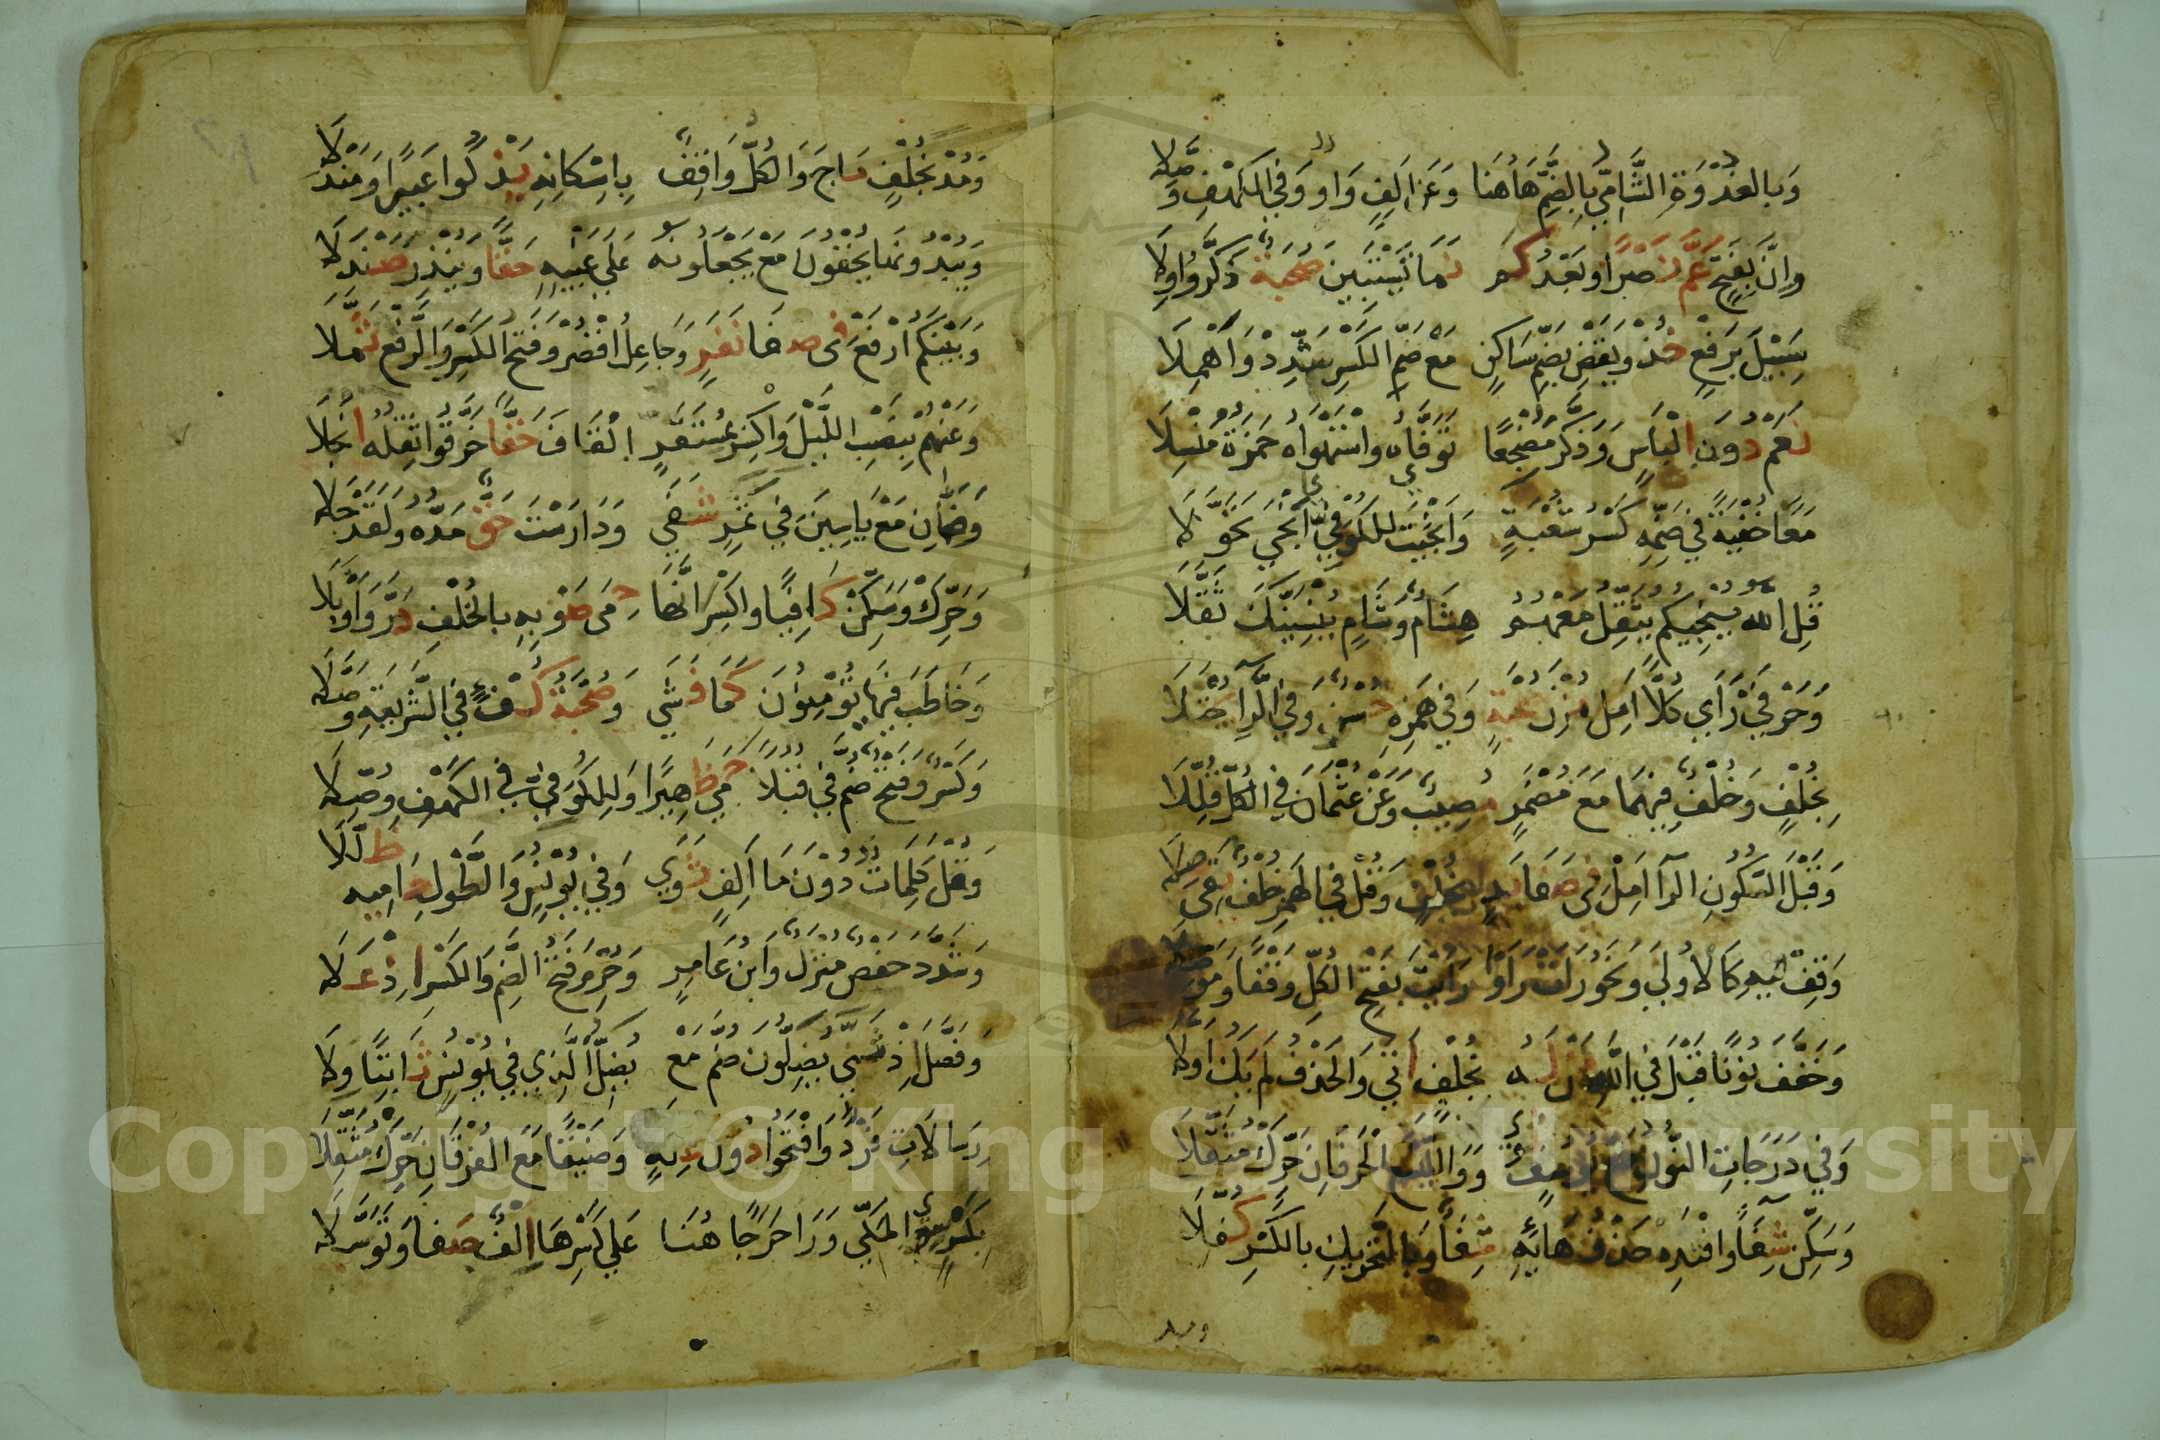 وَبِالغُدْوَةِ الشَّامِيُّ بِالضَّمِّ هَاهُنَا وَعَنْ اَلِفٍ وَاوٌ وَفِي الكَهْفِ وَصَّلَا
وَاِنَّ بِفَتْحٍ عَمَّ نَصْرًا وَبَعْدُ كَمْ نَمَا تَسْتَبِينَ صُحْبَةٌ ذَكَّرُوا وِلَا
سَبِيلَ بِرَفْعٍ خُذْ وَيَقْضِ بِضَمِّ سَاكِنٍ مَعْ ضَمِّ الكَسْرِ شَدِّدْ وَاَهْمِلَا
نَعَمْ دُونَ اِلْبَاسٍ وَذَكَّرَ مُضْجِعًا تَوَفَّاهُ وَاسْتَهْوَاهُ حَمْزَةُ مُنْسِلَا
مَعًا خُفْيَةً فِي ضَمِّهِ كَسْرُ شُعْبَةٍ وَاَنْجَيْتَ لِلكُوفِيِّ اَنْجَى تَحَوَّلَا
قُلِ اللَّهُ يُنْجِيكُمْ يُثَقِّلُ مَعْهُمُ هِشَامٌ وَشَامٍ يُنْسِيَنَّكَ ثَقَّلَا
وَحَرْفَيْ رَأَى كُلًّا اَمِلْ مُزْنَ صُحْبَةٍ وَفِي هَمْزِهِ حُسْنٌ وَفِي الرَّآ يُجْتَلَا
بِخُلْفٍ وَخُلْفٌ فِيهِمَا مَعَ مُضْمَرٍ مُصِيبٌ وَعَنْ عُثْمَانَ فِي الكُلِّ قَلِّلَا
وَقَبْلَ السُّكُونِ الرَّآ اَمِلْ فِي صَفَا يَدٍ بِخُلْفٍ وَقُلْ فِي الهَمْزِ خُلْفٌ يَقِي صِلَا
وَقِفْ فِيهِ كَالاُولَى وَنَحْوُ رَأَتْ رَأَوْا رَأَيْتَ بِفَتْحِ الكُلِّ وَقْفًا وَمَوْصِلَا
وَخَفَّفَ نُونًا قَبْلَ فِي اللَّهِ مَنْ لَهُ بِخُلْفٍ اَتَى وَالحَذْفُ لَمْ يَكُ اَوَّلَا
وَفِي دَرَجَاتِ النُّونُ مَعْ يُوسُفٍ ثَوَى وَوَاللَّيْسَعَ الحَرْفَانِ حَرِّكْ مُثَقِّلَا
وَسَكِّنْ شِفَاءً وَاقْتَدِهْ حَذْفُ هَائِهِ شِفَاءً وَبِالتَّحْرِيكِ بِالكَسْرِ كُفِّلَا
ومد
وَمُدَّ بِخُلْفٍ مَاجَ وَالكُلُّ وَاقِفٌ بِاِسْكَانِهِ يَذْكُو عَبِيرًا وَمَنْدَلَا
وَيُبْدُونَهَا يُخْفُونَ مَعْ يَجْعَلُونَهُ عَلَى غَيْبِهِ حَقًّا وَيُنْذِرَ صَنْدَلَا
وَبَيْنَكُمُ ارْفَعْ فِي صَفَا نَفَرٍ وَجَاعِلُ اقْصُرْ وَفَتْحُ الكَسْرِ وَالرَّفْعِ ثُمِّلَا
وَعَنْهُمْ بِنَصْبِ اللَّيْلَ وَاكْسِرْ بِمُسْتَقَرٍّ القَافَ حَقًّا خَرَّقُوا ثِقْلُهُ انْجَلَا
وَضَمَّانِ مَعْ يَاسِينَ فِي ثَمَرٍ شَفَى وَدَارَسْتَ حَقٌّ مَدُّهُ وَلَقَدْ حَلَا
وَحَرِّكْ وَسَكِّنْ كَافِيًا وَاكْسِرَ انَّهَا حِمَى صَوْبِهِ بِالخُلْفِ دَرَّ وَاَوْبَلَا
وَخَاطَبَ فِيهَا يُؤْمِنُونَ كَمَا فَشَى وَصُحْبَةُ كُفْءٍ فِي الشَّرِيعَةِ وَصَّلَا
وَكَسْرٌ وَفَتْحٌ ضُمَّ فِي قِبَلًا حَمَى ظَهِيرًا وَلِلكُوفِيِّ فِي الكَهْفِ وُصِّلَا
وَقُلْ كَلِمَاتٌ دُونَ مَا اَلِفٍ ثَوَى وَفِي يُونُسٍ وَالطَّوْلِ حَامِيهِ ظَلَّلَا
وَشَدَّدَ حَفْصٌ مُنْزَلٌ وَابْنُ عَامِرٍ وَحُرِّمَ فَتْحُ الضَّمِّ وَالكَسْرِ اِذْ عَلَا
وَفُصِّلَ اِذْ ثَنَّى يَضِلُّونَ ضُمَّ مَعْ يَضِلُّوا الَّذِي فِي يُونُسٍ ثَابِتًا وَلَا
رِسَالَاتِ فَرْدٌ وَافْتَحُوا دُونَ عِلَّةٍ وَضَيْقًا مَعَ الفُرْقَانِ حَرِّكْ مُثَقِّلَا
بِكَسْرٍ سِوَى المَكِّي وَرَا حَرَجًا هُنَا عَلَى كَسْرِهَا اِلْفٌ صَفَا وَتَوَسَّلَا
Copyright © King Saud University